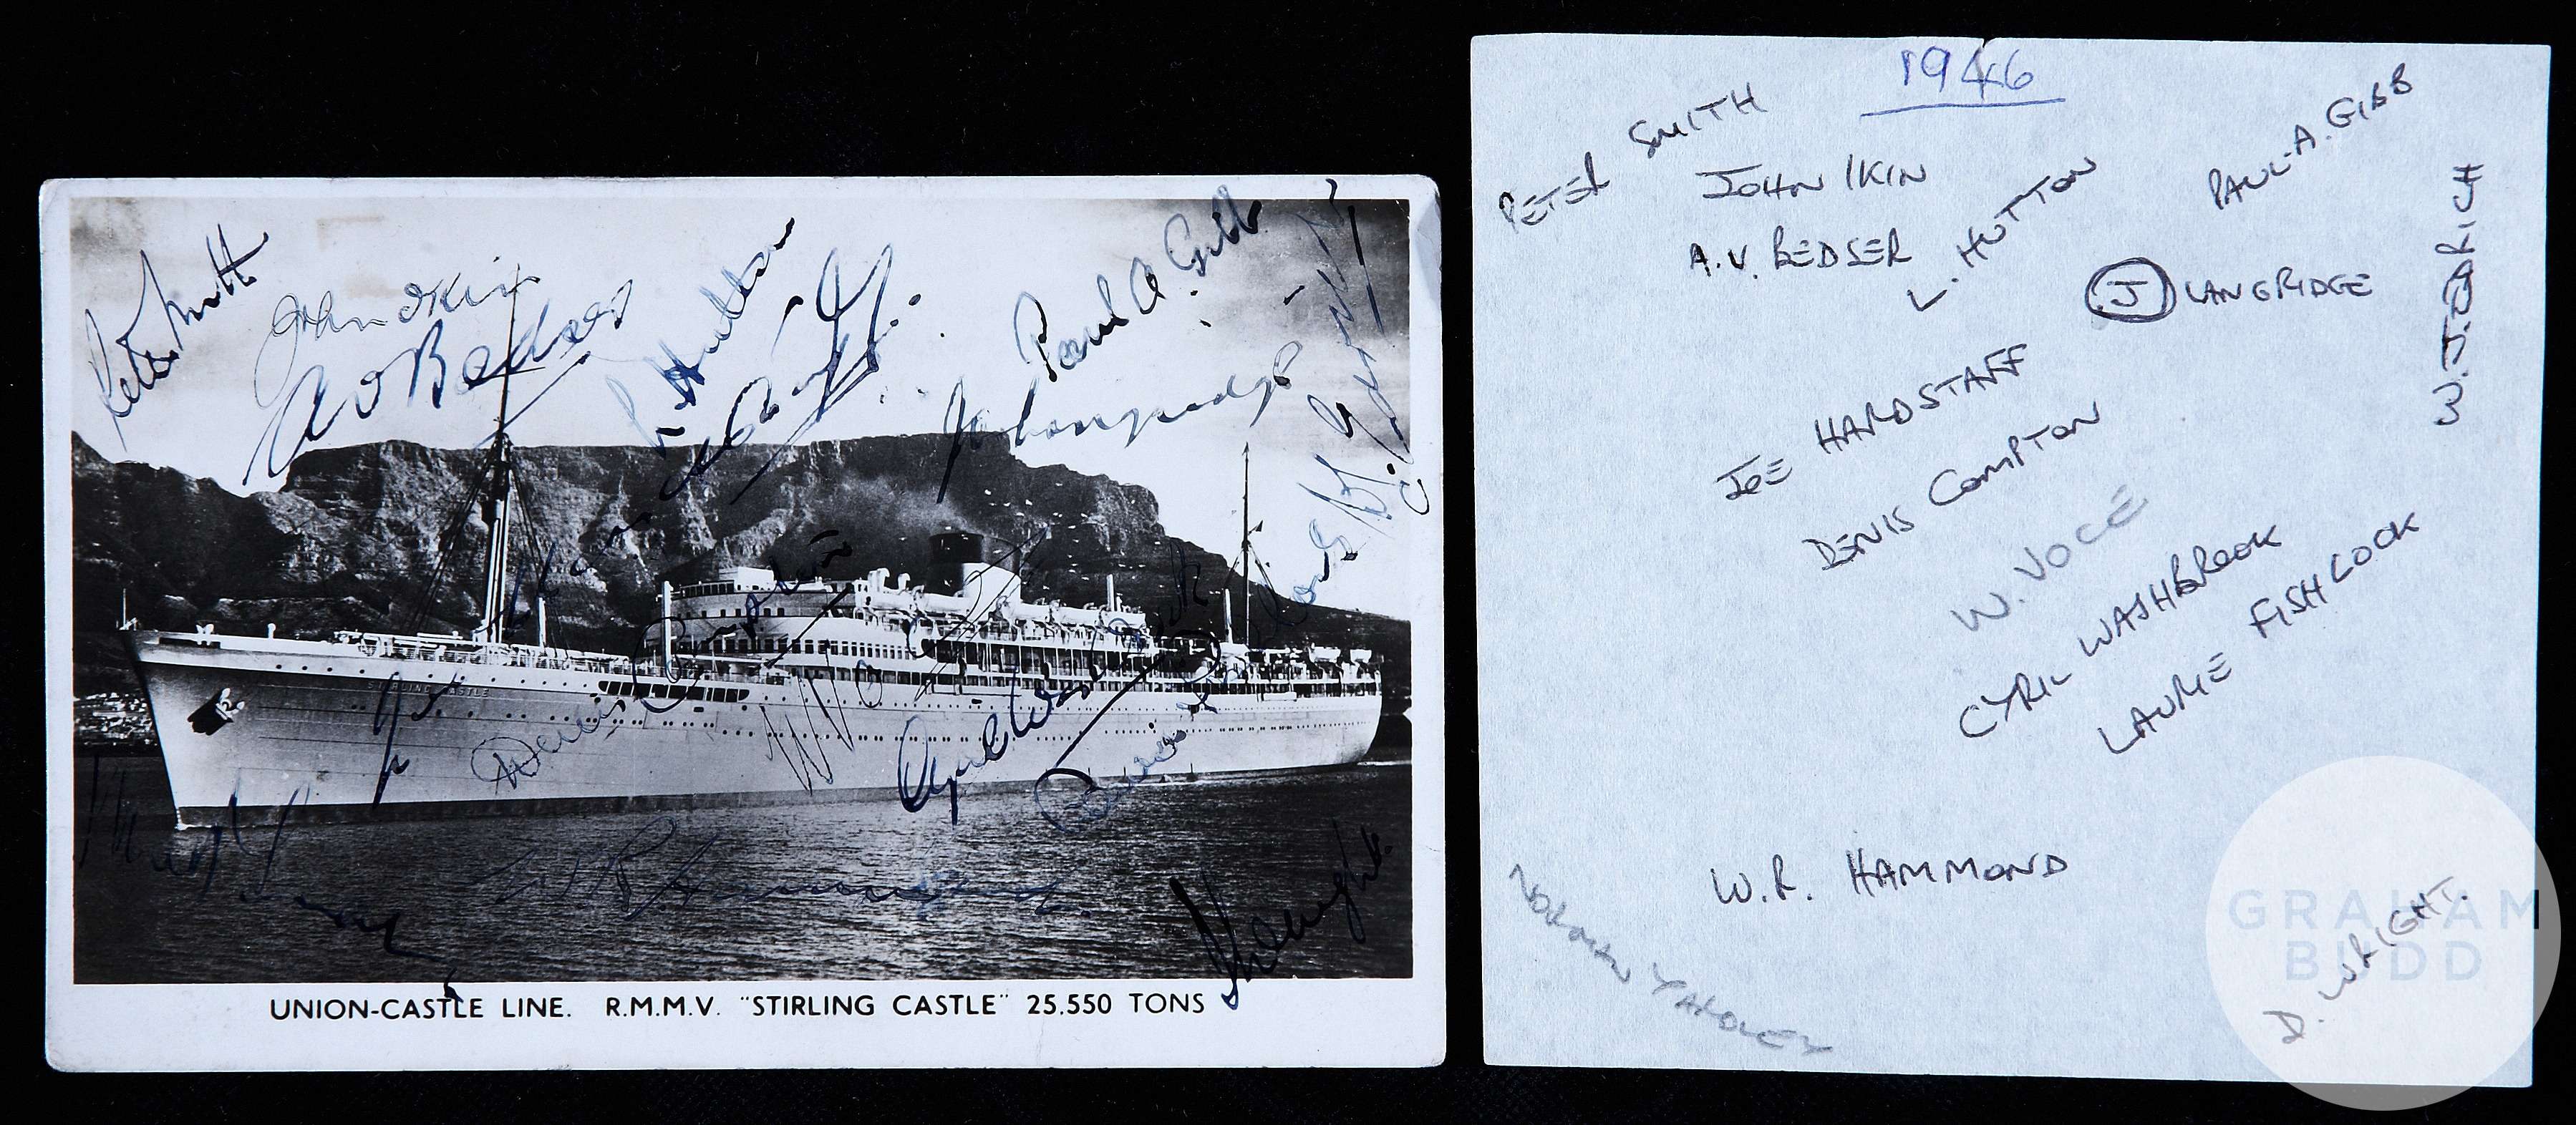 Peter Smith
John Ikin
AV Bedser
L Hutton
Paul A. Gibb
Langridge
Denis Compton
W Voce
Cyril Washbrook
W.R. Hammond
STIRLING CASTLE
UNION-CASTLE LINE. R.M.M.V. "STIRLING CASTLE" 25.550 TONS
1946
PETER SMITH
JOHN IKIN
A.V. BEDSER
L. HUTTON
PAUL A. GIBB
J LANGRIDGE
W.J. EDRICH
JOE HARDSTAFF
DENIS COMPTON
W. VOCE
CYRIL WASHBROOK
LAURIE FISHLOCK
W.R. HAMMOND
NORMAN YARDLEY
D. WRIGHT.
GRAHAM
BUDD